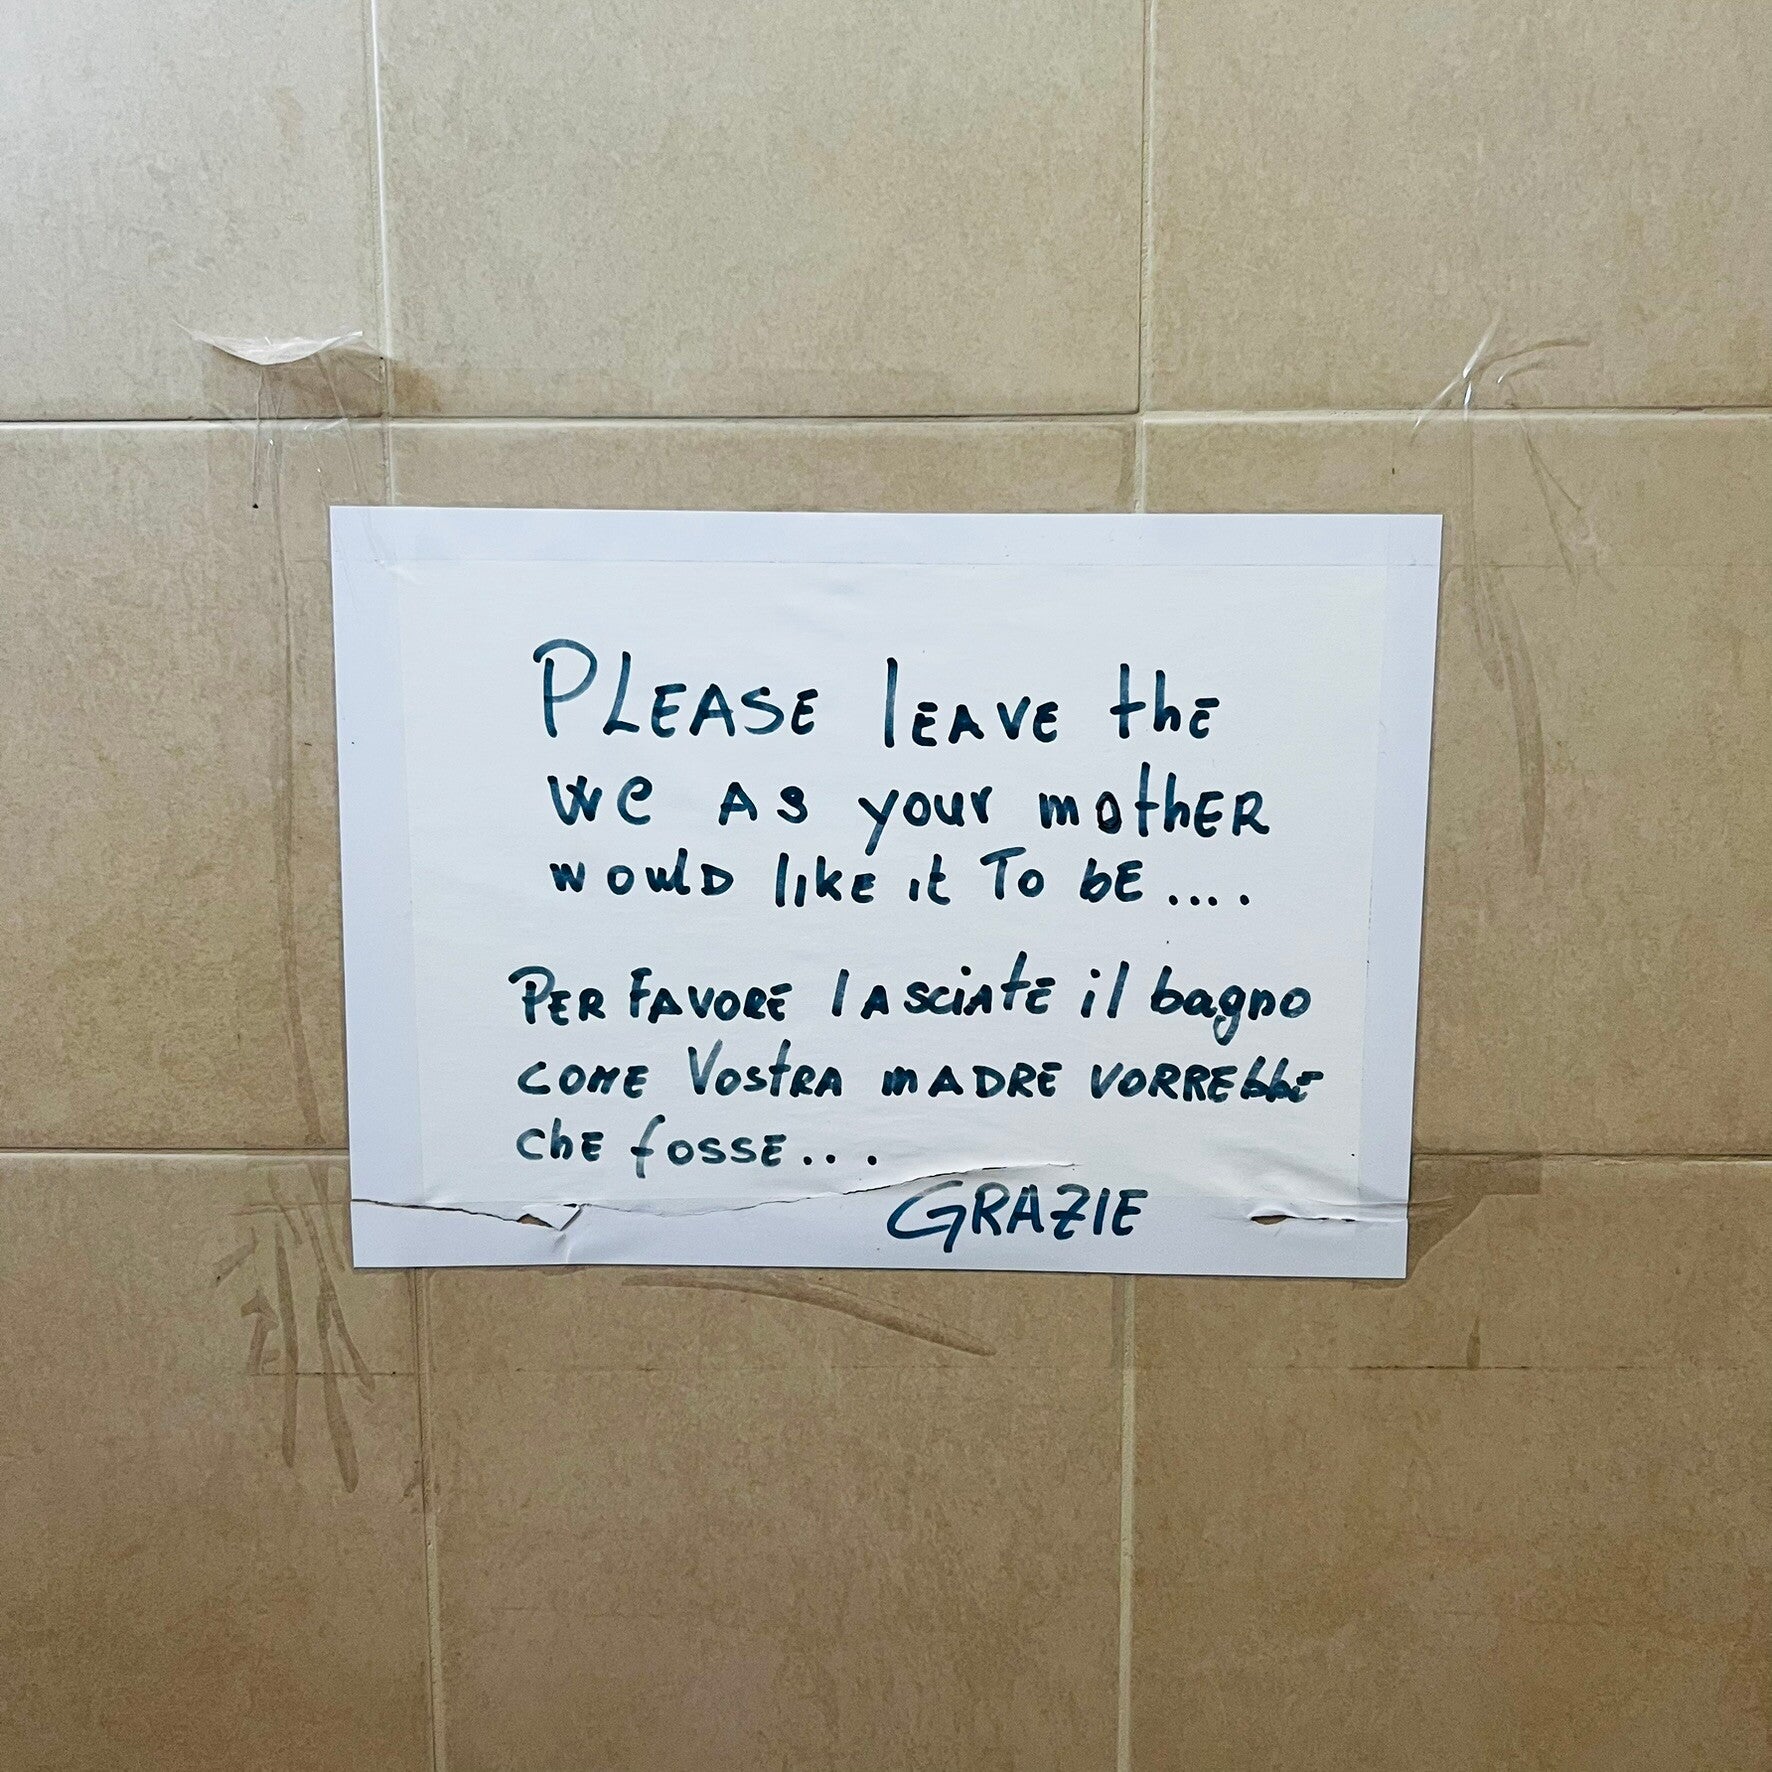 PLEASE leAVE the
WC AS your mother
would like it To bE....
PER FAVORE lAsciate il bagno
COME VostRA mADRE VORREbbE
chE fossE...
GRAZIE